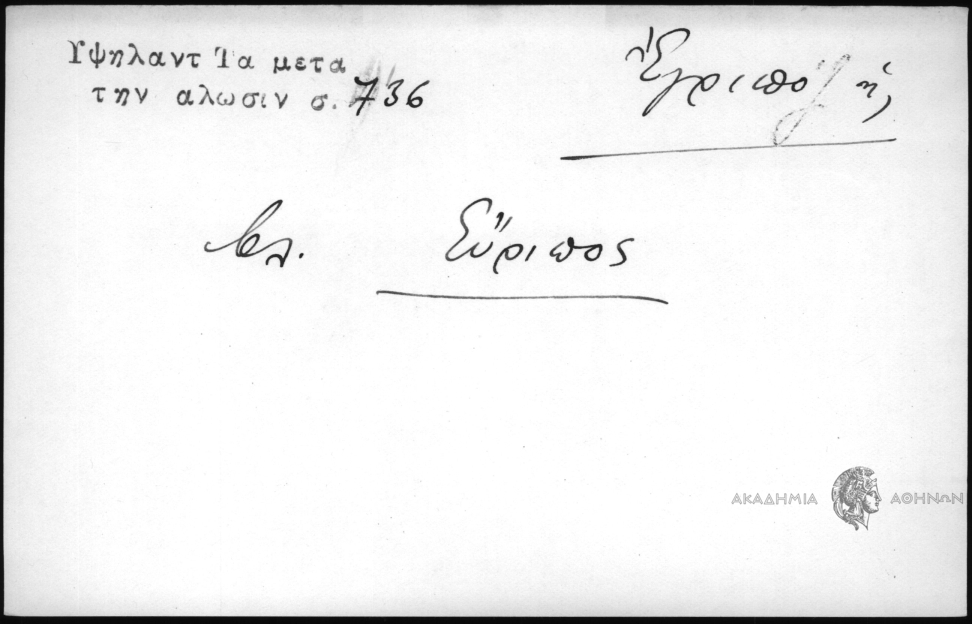 Υψηλαντ Τα μετα
την αλωσιν σ. 736
Ἔγριπο ἡ,
βλ. Εὔριπος
ΑΚΑΔΗΜΙΑ ΑΘΗΝΩΝ